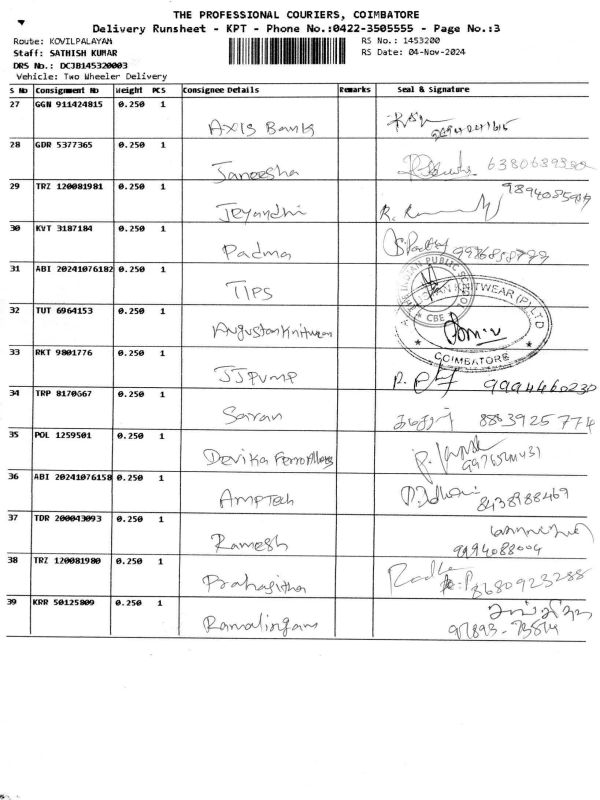 THE PROFESSIONAL COURIERS, COIMBATORE
Delivery Runsheet - KPT - Phone No.:0422-3505555 - Page No.:3
Route: KOVILPALAYAM RS No.: 1453200
Staff: SATHISH KUMAR RS Date: 04-Nov-2024
DRS No.: DCJB145320003
Vehicle: Two Wheeler Delivery
S No Consignment No Weight PCS Consignee Details Remarks Seal & Signature
27 GGN 911424815 0.250 1
Axis Bank
28 GDR 5377365 0.250 1
Janeesha 6380689330
29 TRZ 120081981 0.250 1
Jeyandhi
30 KVT 3187184 0.250 1
Padma
31 ABI 20241076182 0.250 1
TIPS
INDIAN PUBLIC SCHOOL
CBE
32 TUT 6964153 0.250 1
KNITWEAR (P) LTD
COIMBATORE
33 RKT 9801776 0.250 1
JJ Pump 9994460230
34 TRP 8170667 0.250 1
Saran 8883925774
35 POL 1259501 0.250 1
Devika Ferro Alloys
36 ABI 20241076158 0.250 1
AMPTech 8438988469
37 TDR 200043093 0.250 1
Ramesh 9994088004
38 TRZ 120081980 0.250 1
Radha
39 KRR 50125809 0.250 1
Ramalingam